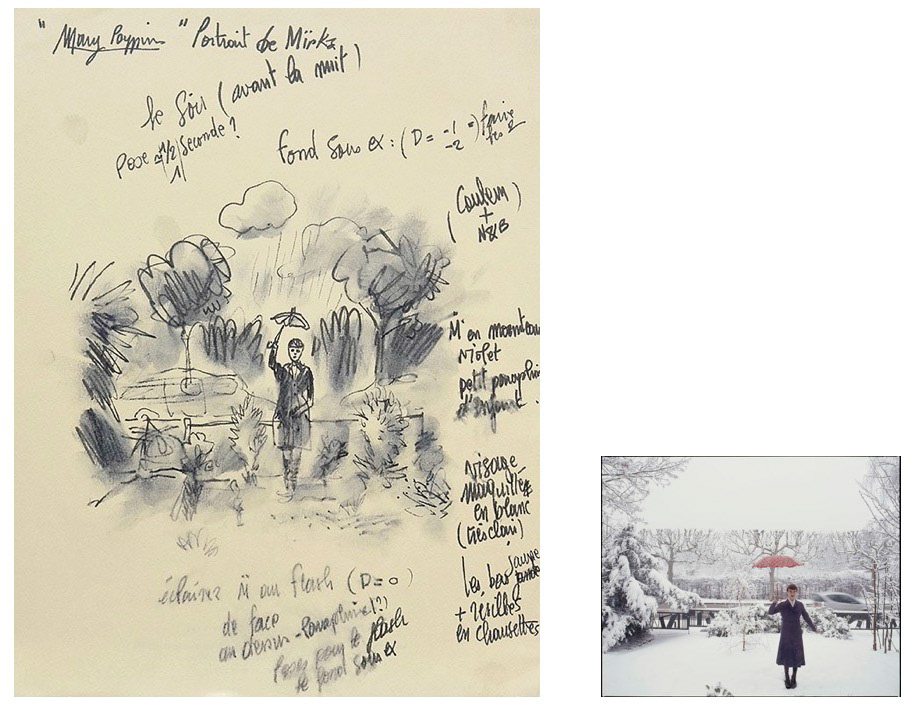 "Mary Poppins" Portrait de Mirka
le soir (avant la nuit)
Pose 1/2 seconde ?
1
fond sous ex : (D = -1 =)
-2
(Couleur
+
N&B)
M en manteau
violet
petit parapluie
d'enfant.
visage
maquillé
en blanc
(très clair)
les bas
+ vieilles
en chaussettes
éclairer M au flash (D=0)
de face
au dessus - parapluie !?)
Poser pour le flash
le fond sous ex